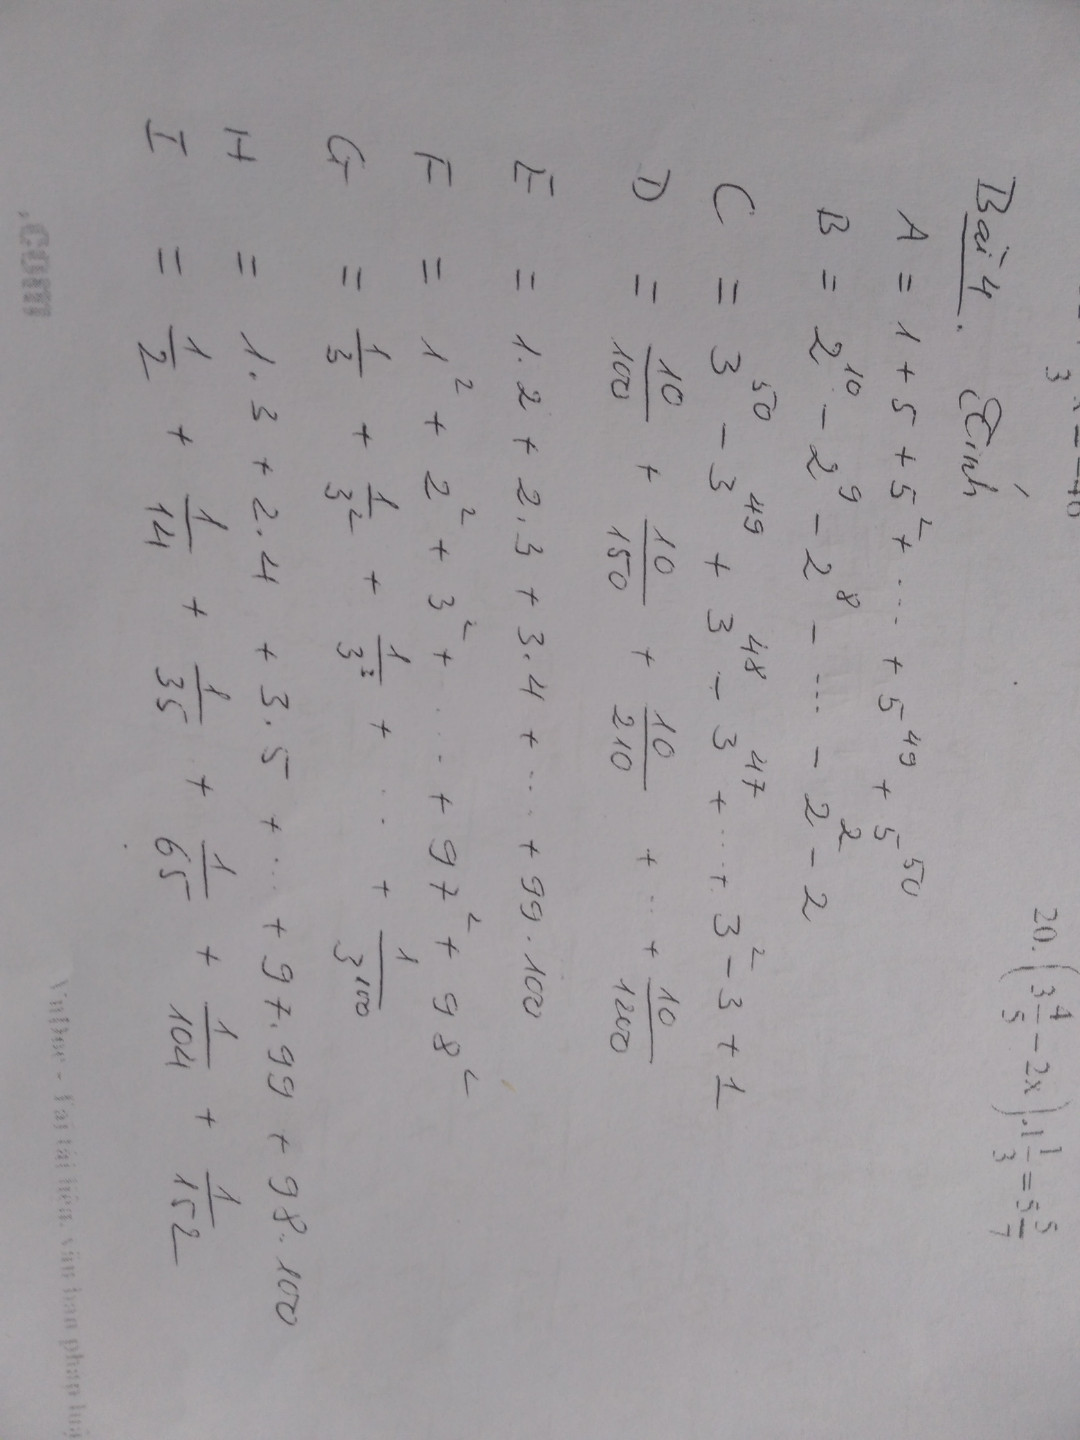 20. (3 4/5 − 2x).1 1/3 = 5 5/7
Bài 4. Tính
A = 1 + 5 + 5² + ... + 5⁴⁹ + 5⁵⁰
B = 2¹⁰ − 2⁹ − 2⁸ − ... − 2² − 2
C = 3⁵⁰ − 3⁴⁹ + 3⁴⁸ − 3⁴⁷ + ... + 3² − 3 + 1
D = 10/100 + 10/150 + 10/210 + ... + 10/1200
E = 1.2 + 2.3 + 3.4 + ... + 99.100
F = 1² + 2² + 3² + ... + 97² + 98²
G = 1/3 + 1/3² + 1/3³ + ... + 1/3¹⁰⁰
H = 1.3 + 2.4 + 3.5 + ... + 97.99 + 98.100
I = 1/2 + 1/14 + 1/35 + 1/65 + 1/104 + 1/152
VnDoc - Tải tài liệu, văn bản pháp luậ
.com